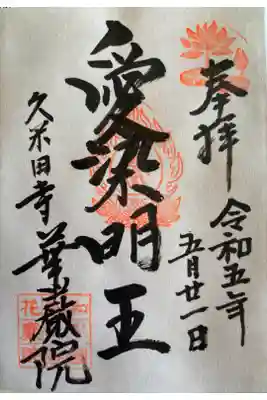 奉拝
令和五年
五月廿一日
愛染明王
久米田寺
華蔵院